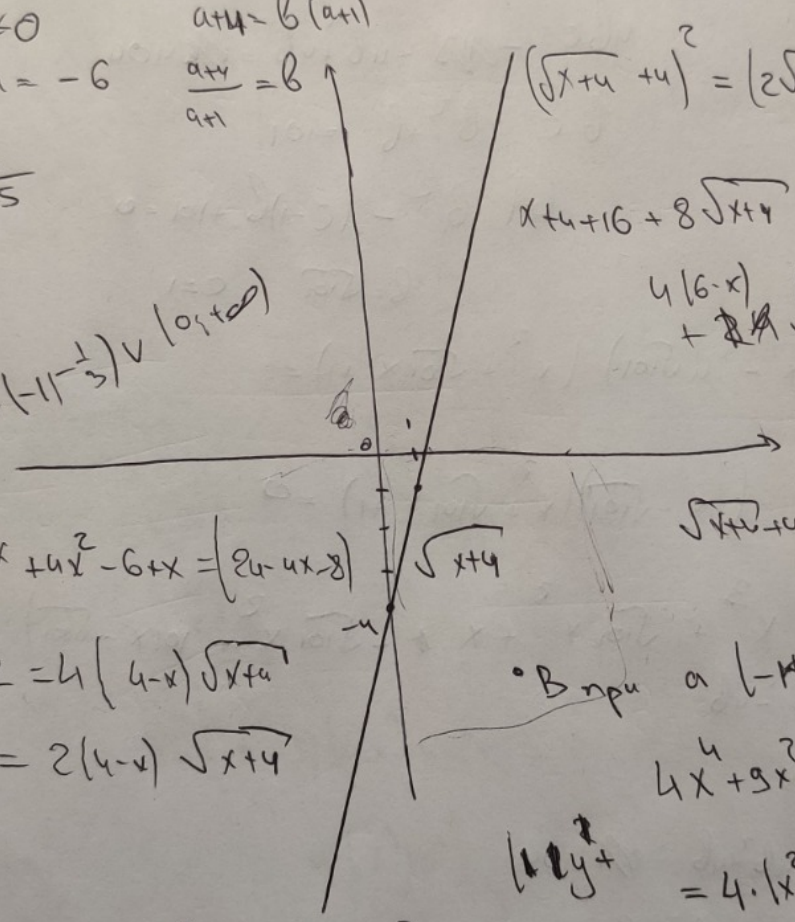 a+4 = b(a+1)
= -6
a+4/a+1 = b
(√x+4 + 4)² = (2√
x+4+16 + 8√x+4
4(6-x)
(-1)-1/3) ∨ (0; +∞)
0
1
√x+4 +4
+4x² -6+x = (24-4x-8) √x+4
-4
= 4(4-x)√x+4
= 2(4-x) √x+4
• В при a (-
4x⁴+9x²
= 4·(x²